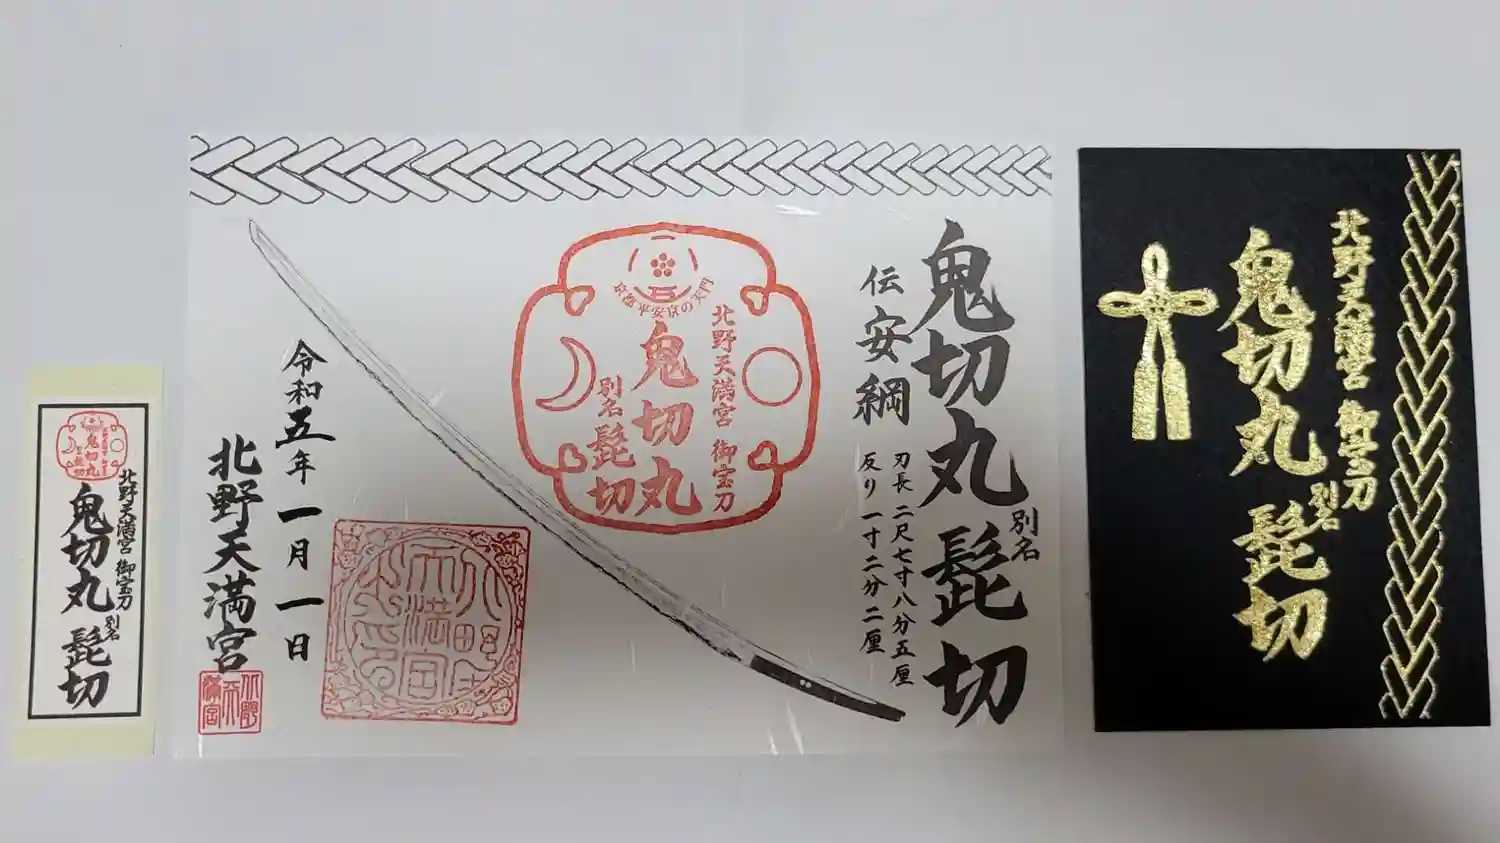 北野天満宮 御宝刀
鬼切丸 別名 髭切
鬼切丸 別名 髭切
伝安綱
刃長 二尺七寸八分五厘
反り 一寸二分二厘
京都平安京の天門
北野天満宮 御宝刀
鬼切丸
別名 髭切
令和五年 一月 一日
北野天満宮
北野天満宮
北野天満宮 御宝刀
鬼切丸 別名 髭切